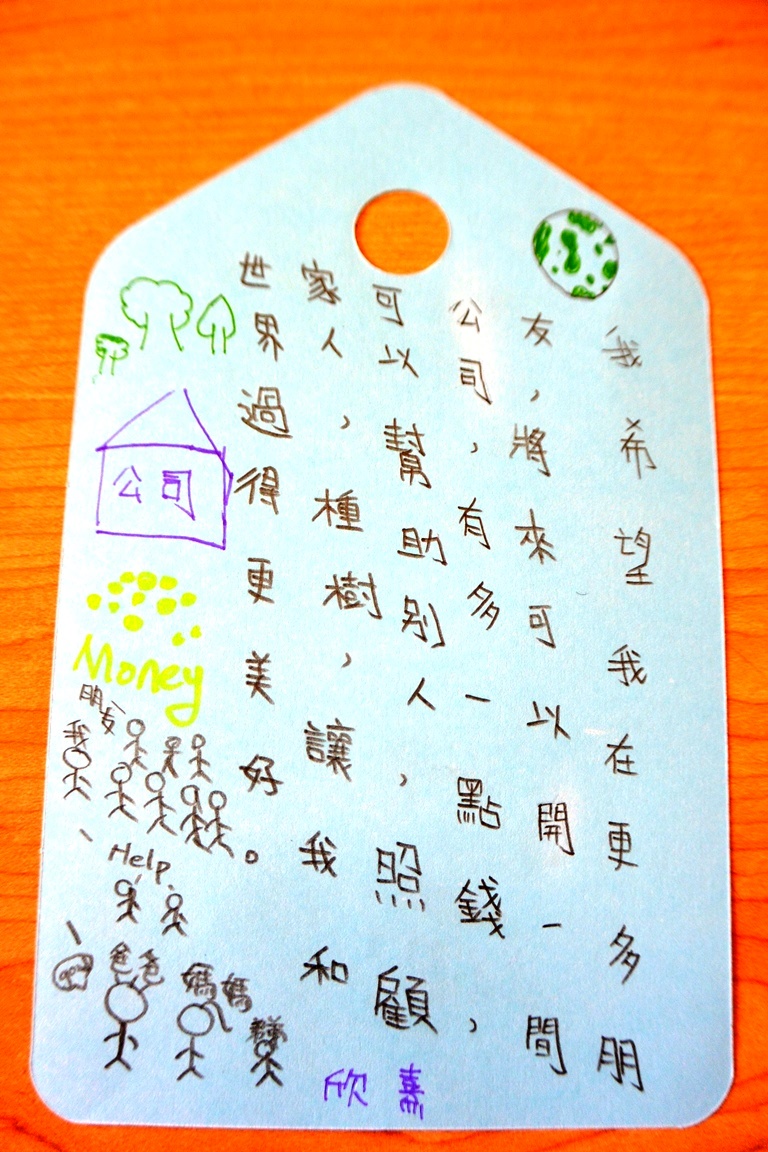 我希望我在更多朋
友，將來可以開一間
公司，有多一點錢，
可以幫助別人，照顧
家人，種樹，讓我和
世界過得更美好。
公司
Money
朋友
我
Help
爸爸
媽媽
欣熹